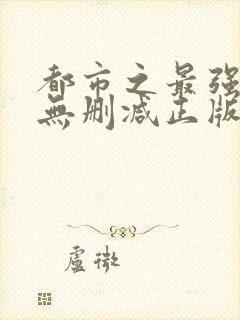 都市之最强
無删减正版
盧徵